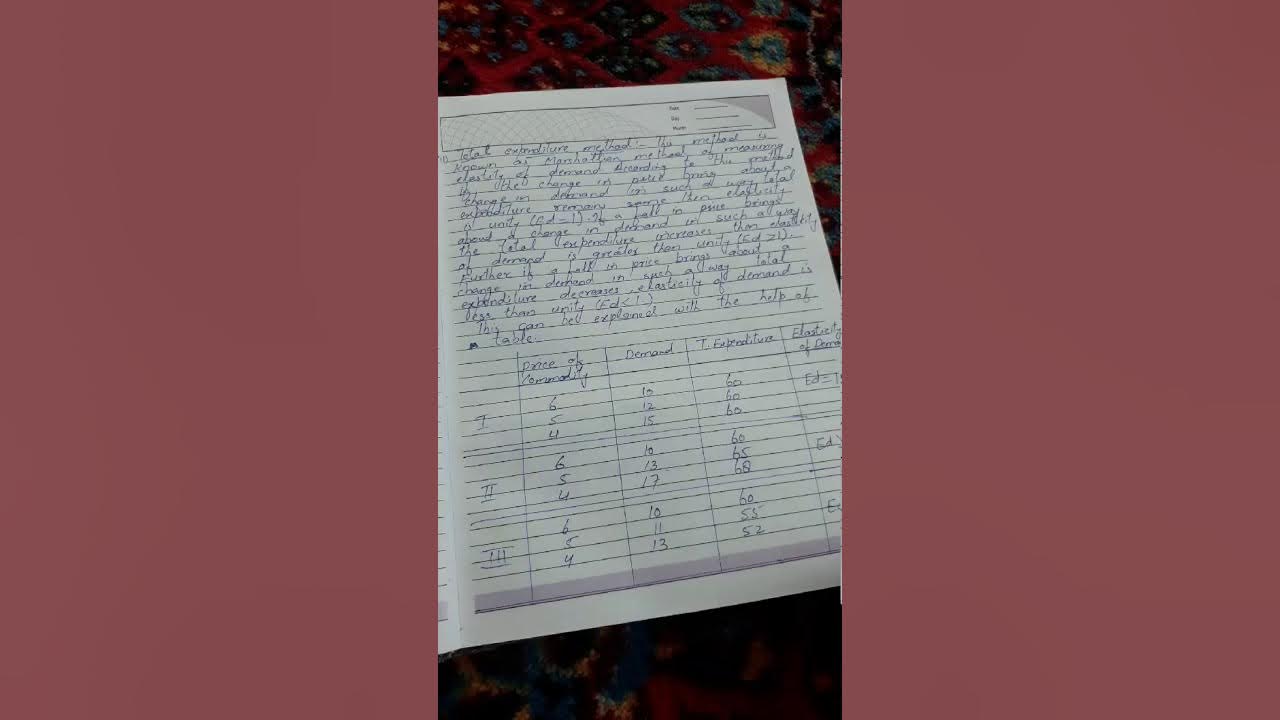 Date
Day
Month
1) Total expenditure method:- This method is
known as Marshallian method of measuring
elastity of demand. According to this method
if the change in price bring about a
change in demand in such a way total
expenditure remain same then elasticity
is unity (Ed=1). If a fall in price brings
about a change in demand in such a way
the total expenditure increases then elastity
of demand is greater than unity (Ed>1).
Further if a fall in price brings about a
change in demand in such a way total
expenditure decreases, elasticity of demand is
less than unity (Ed<1)
This can be explained with the help of
a table:
Price of Commodity Demand T. Expenditure Elasticity of Dema
6 10 60
I 5 12 60 Ed=1
4 15 60
6 10 60
5 13 65 Ed>
II 4 17 68
6 10 60
5 11 55
III 4 13 52